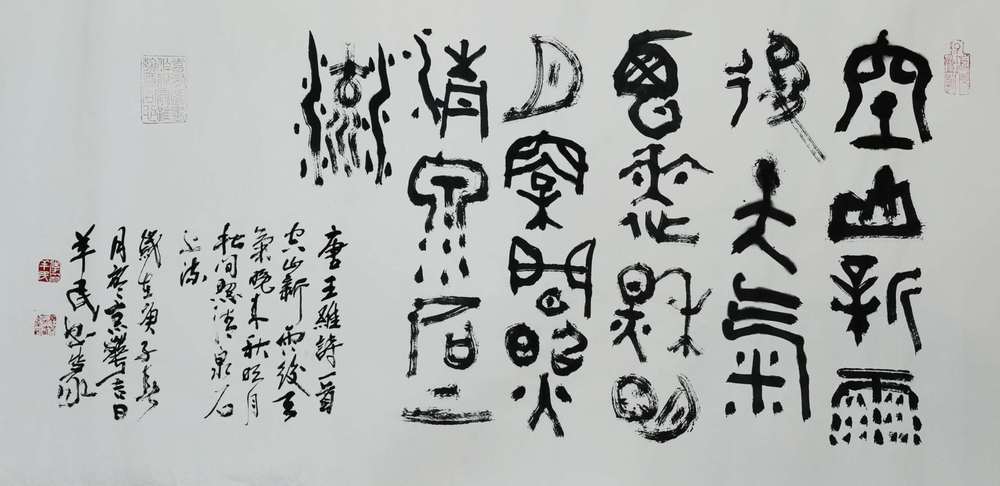 空山新雨
後天氣
晚來秋明
月松間照
清泉石上
流
唐王維詩一首
空山新雨後天
氣晚來秋明月
松間照清泉石
上流
歲在庚子春
月於京華吉日